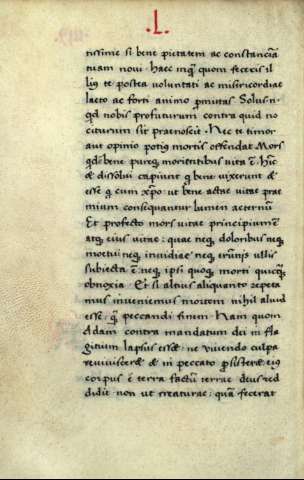 .L.
tissime si bene pietatem ac constanciā
tuam novi. Haec inq̃ quom feceris il
lius te postea voluntati ac misericordiae
laeto ac forti animo ꝑmittas Solus n̄.
qd nobis profuturum contra quid no
citurum sit praenoscit. Nec te timor
aut opinio potius mortis offendat Mors
qđe bene pureq̃ morientibus vita ē. Hic
& dissolvi capiunt q bene vixerunt &
esse q cum xp̄o: ut bene actae vitae prae
miam consequantur lumen aeternū
Et profecto mors vitae principium ē
atq̃ eius vitae: quae neq̃ doloribus neq̃
motui neq̃ invidiae neq̃ erūnis ullis
subiecta ē neq̃ ipsi quoq̃ morti
obnoxia. Et si altius aliquanto repeta
mus inveniemus mortem nihil aliud
esse: q̃ peccandi finem. Nam quom
Adam contra mandatum dei in fla
gitium lapsus esset: ne vivendo culpa
revivisceret & in peccato ꝑsisteret eius
corpus e terra factū terrae deus red
didit non ut creaturae: quā fecerat